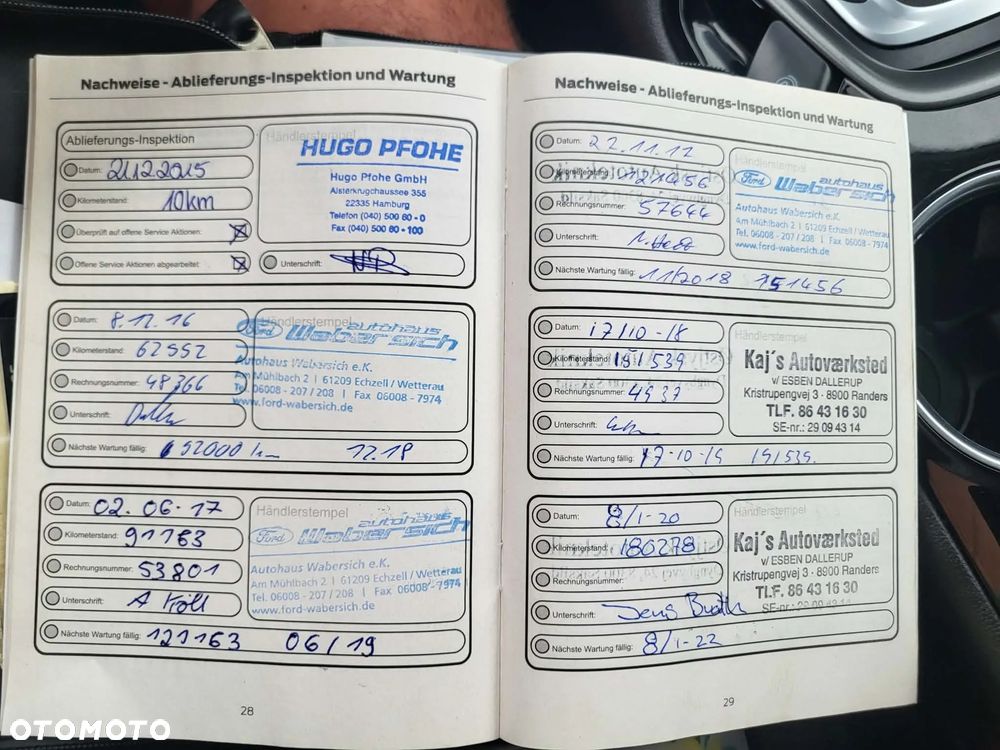 Nachweise - Ablieferungs-Inspektion und Wartung
Ablieferungs-Inspektion
Datum: 21.12.2015
Kilometerstand: 10km
Überprüft auf offene Service Aktionen:
Offene Service Aktionen abgearbeitet:
Händlerstempel
HUGO PFOHE
Hugo Pfohe GmbH
Alsterkrugchaussee 355
22335 Hamburg
Telefon (040) 500 60 - 0
Fax (040) 500 60 - 100
Unterschrift:
Datum: 8.12.16
Kilometerstand: 62552
Rechnungsnummer: 48366
Unterschrift:
Händlerstempel
Ford autohaus
Wabersich
Autohaus Wabersich e.K.
Am Mühlbach 2 | 61209 Echzell / Wetterau
Tel. 06008 - 207 / 208 | Fax 06008 - 7974
www.ford-wabersich.de
Nächste Wartung fällig: 92000 km 12.18
Datum: 02.06.17
Kilometerstand: 91163
Rechnungsnummer: 53801
Unterschrift: A Kröll
Händlerstempel
Ford autohaus
Wabersich
Autohaus Wabersich e.K.
Am Mühlbach 2 | 61209 Echzell / Wetterau
Tel. 06008 - 207 / 208 | Fax 06008 - 7974
www.ford-wabersich.de
Nächste Wartung fällig: 121163 06/19
28
Nachweise - Ablieferungs-Inspektion und Wartung
Datum: 22.11.17
Kilometerstand: 121456
Rechnungsnummer: 57644
Unterschrift:
Händlerstempel
Ford autohaus
Wabersich
Autohaus Wabersich e.K.
Am Mühlbach 2 | 61209 Echzell / Wetterau
Tel. 06008 - 207 / 208 | Fax 06008 - 7974
www.ford-wabersich.de
Nächste Wartung fällig: 11/2018 151456
Datum: 17/10-18
Kilometerstand: 151539
Rechnungsnummer: 4937
Unterschrift:
Händlerstempel
Kaj's Autoværksted
v/ ESBEN DALLERUP
Kristrupengvej 3 - 8900 Randers
TLF. 86 43 16 30
SE-nr.: 29 09 43 14
Nächste Wartung fällig: 17-10-19 191539.
Datum: 8/1-20
Kilometerstand: 180278
Rechnungsnummer:
Unterschrift: Jens
Händlerstempel
Kaj's Autoværksted
v/ ESBEN DALLERUP
Kristrupengvej 3 - 8900 Randers
TLF. 86 43 16 30
SE-nr.: 29 09 43 14
Nächste Wartung fällig: 8/1-22
29
OTOMOTO